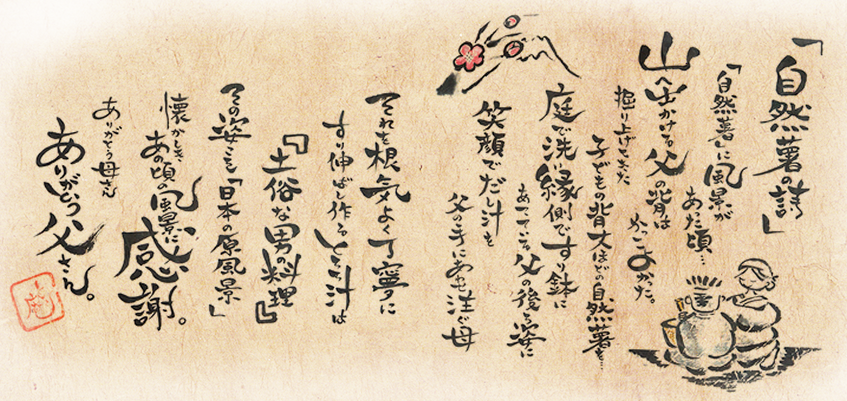 「自然薯の詩」
「自然薯」に風景が
あった頃…
山へ出かける父の背は
かっこよかった。
掘り上げてきた
子どもの背丈ほどの自然薯を…
庭で洗い縁側ですり鉢に
あててこする父の後ろ姿に
笑顔でだし汁を
父の手にあわせ注ぐ母
それを根気よく丁寧に
すり伸ばし作るとろろ汁は
『土俗な男の料理』
その姿こそ「日本の原風景」
懐かしき
あの頃の風景に
感謝。
ありがとう母さん
ありがとう父さん。